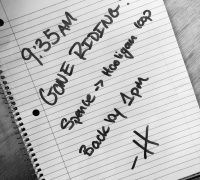 9:35AM
GONE RIDING.
Spence -> Hooligan loop
Back by 1pm
-H